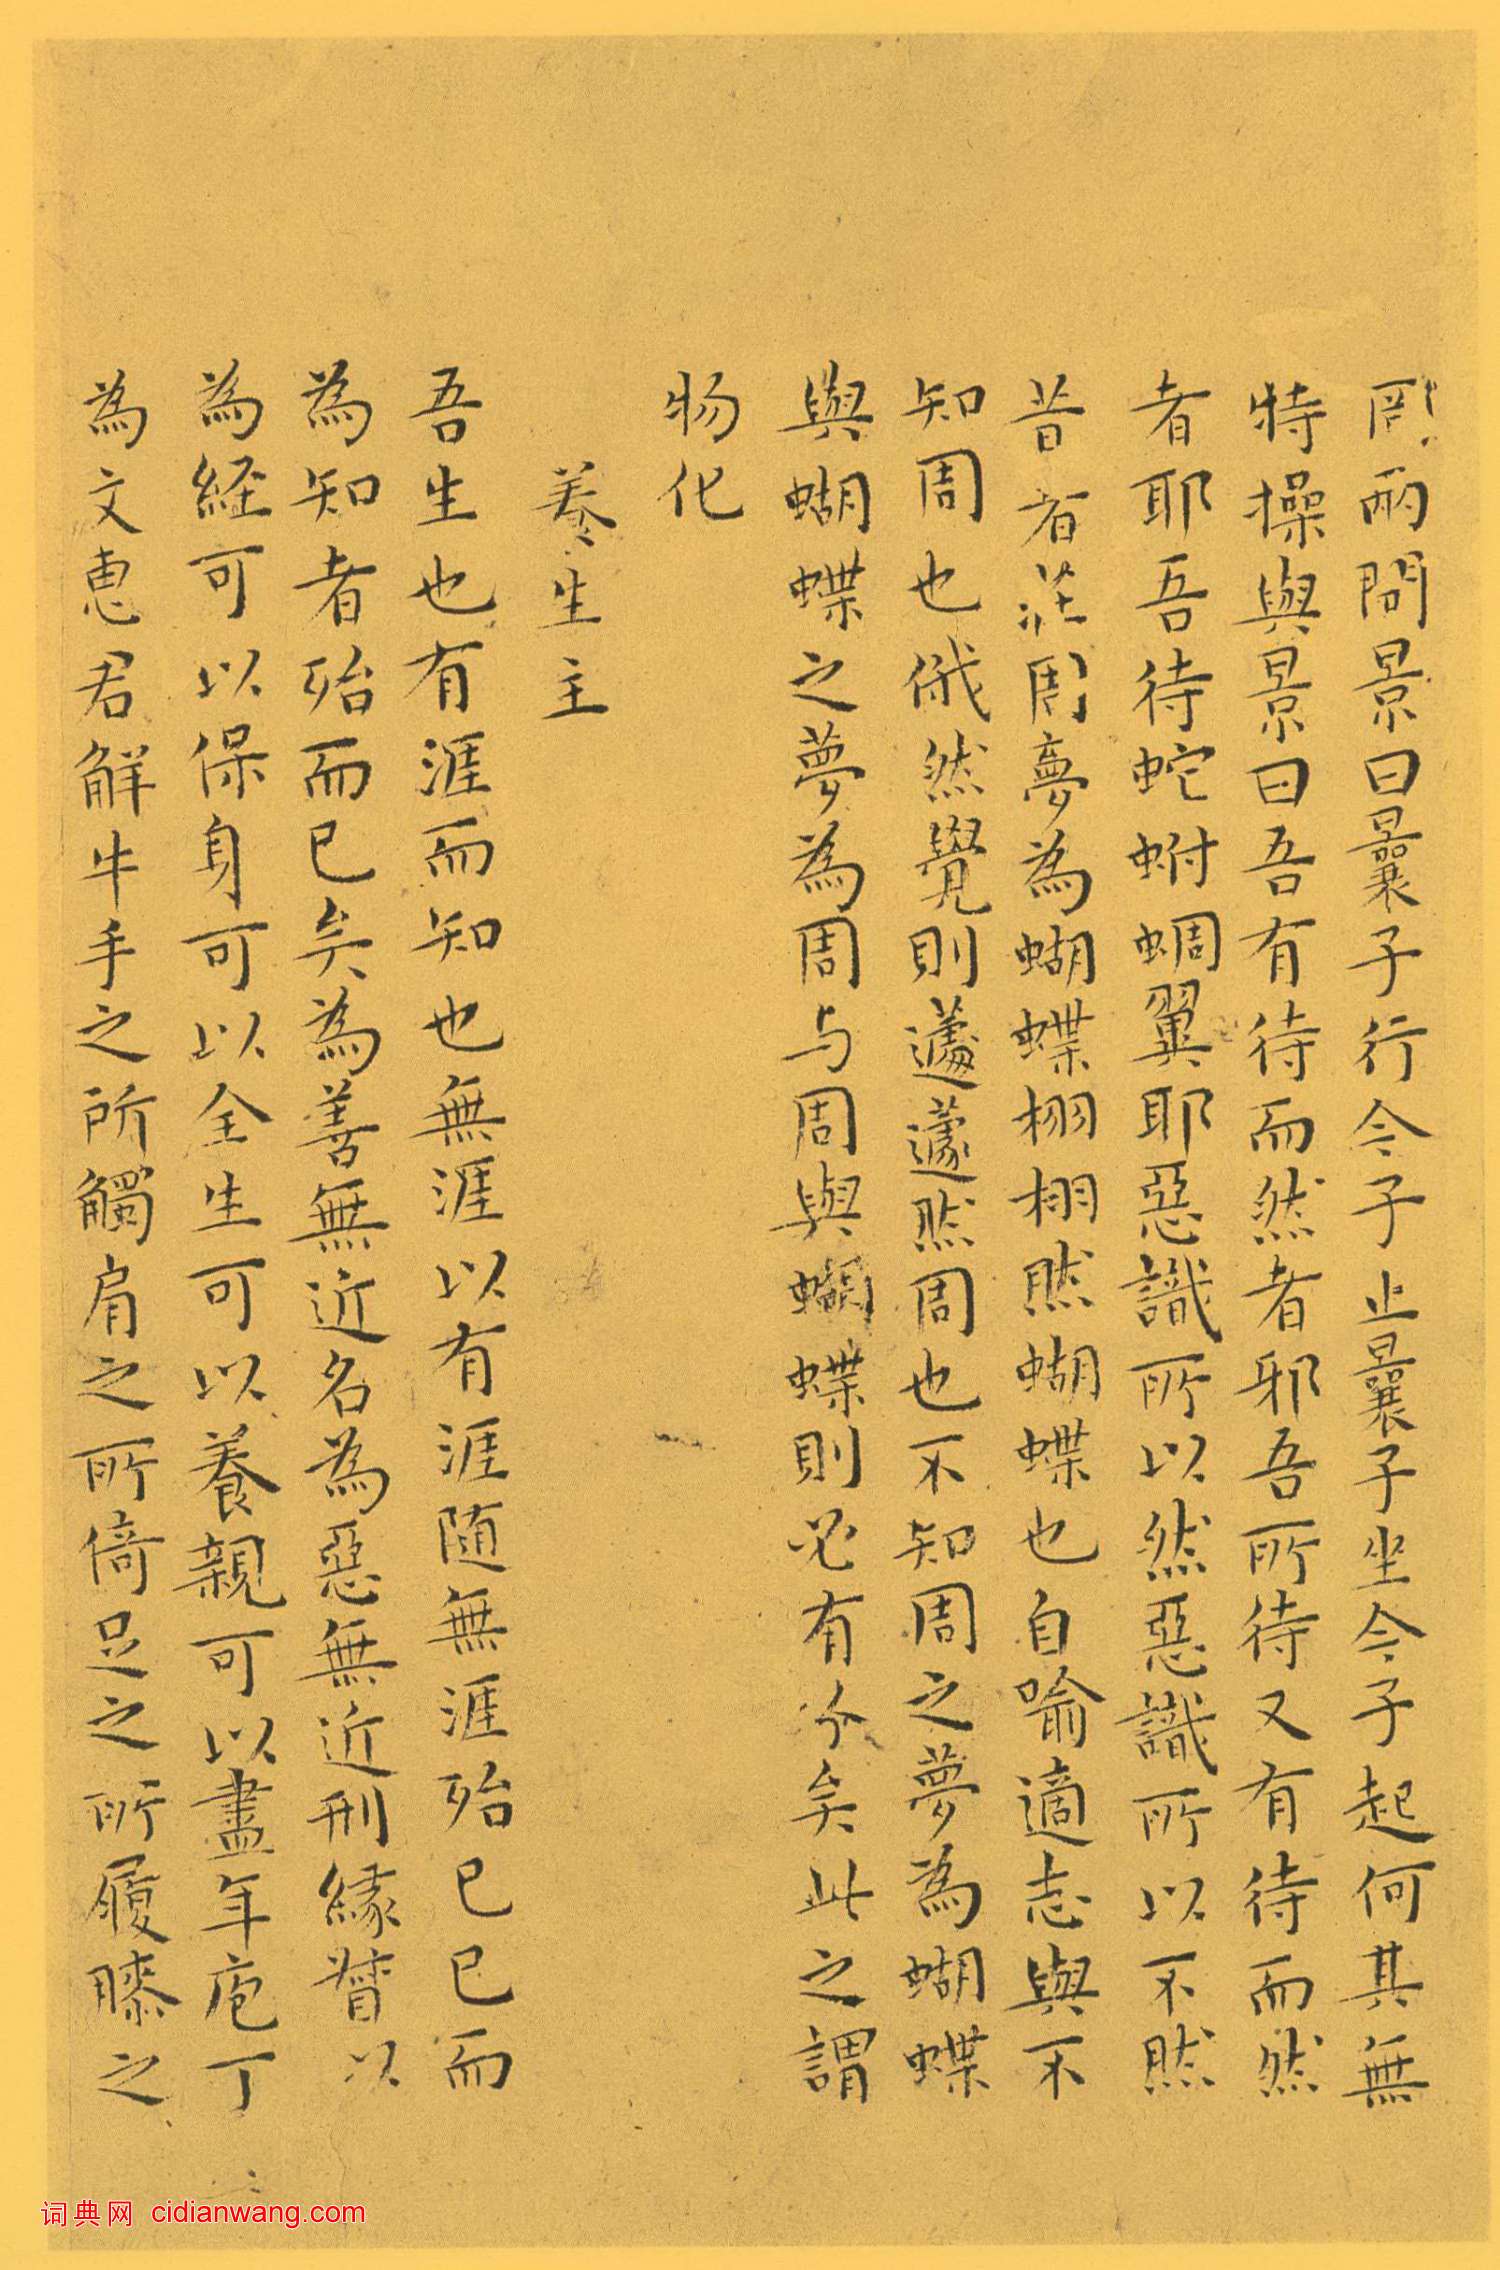 罔兩問景曰曩子行今子止曩子坐今子起何其無
特操與景曰吾有待而然者邪吾所待又有待而然
者耶吾待蛇蚹蜩翼耶惡識所以然惡識所以不然
昔者莊周夢為蝴蝶栩栩然蝴蝶也自喻適志與不
知周也俄然覺則蘧蘧然周也不知周之夢為蝴蝶
與蝴蝶之夢為周与周與蝴蝶則必有分矣此之謂
物化
養生主
吾生也有涯而知也無涯以有涯随無涯殆已已而
為知者殆而已矣為善無近名為惡無近刑緣督以
為經可以保身可以全生可以養親可以盡年庖丁
為文恵君解牛手之所觸肩之所倚足之所履膝之
词典网 cidianwang.com